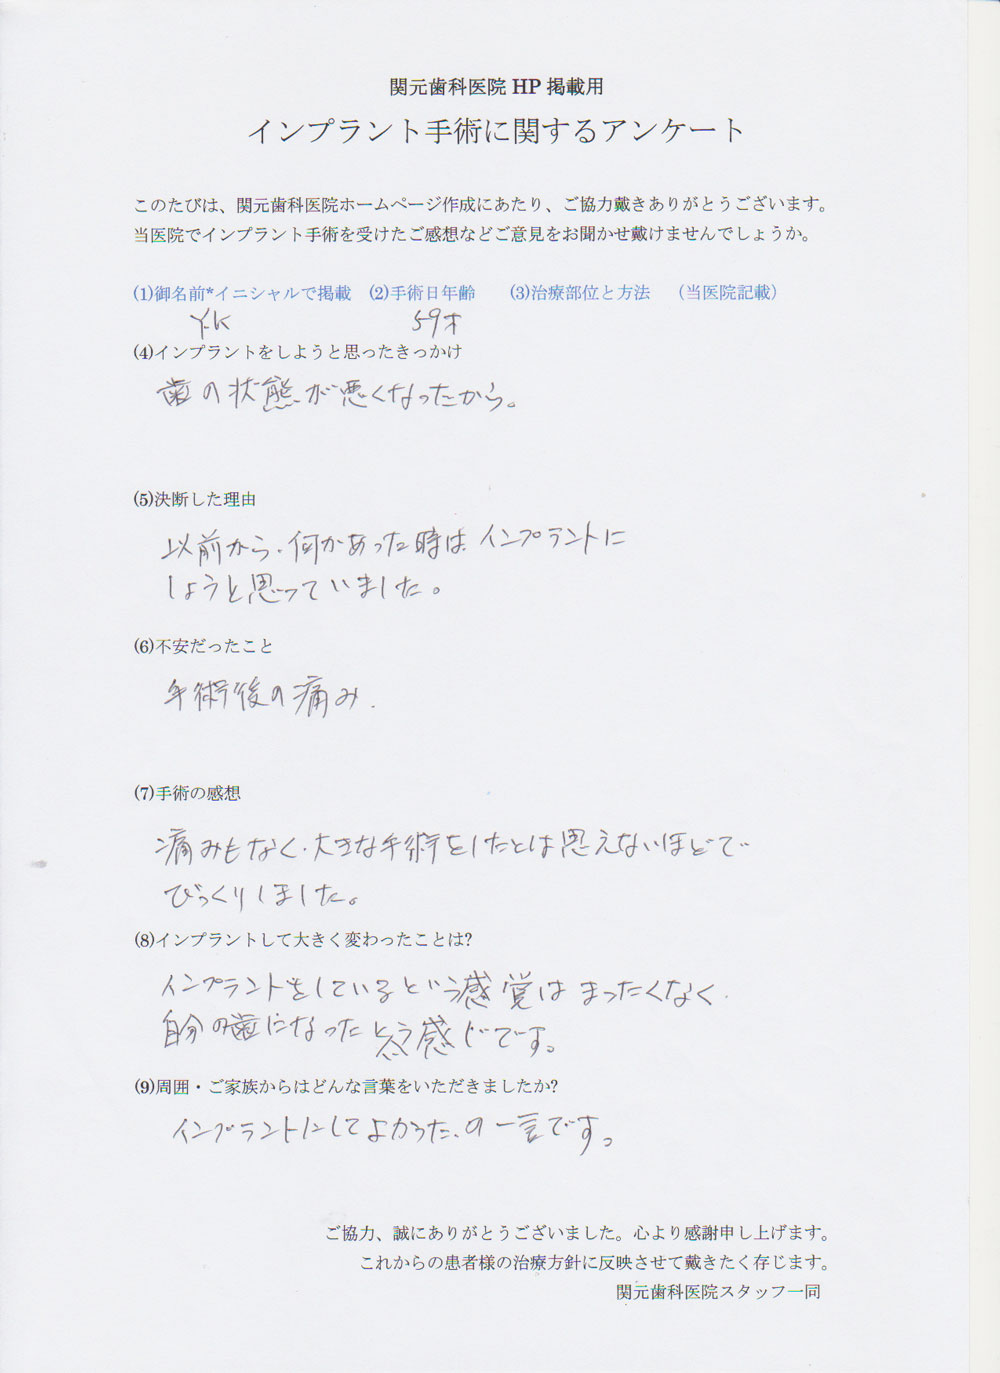 関元歯科医院 HP 掲載用
インプラント手術に関するアンケート
このたびは、関元歯科医院ホームページ作成にあたり、ご協力戴きありがとうございます。
当医院でインプラント手術を受けたご感想などご意見をお聞かせ戴けませんでしょうか。
(1)御名前*イニシャルで掲載 (2)手術日年齢 (3)治療部位と方法 （当医院記載）
Y.K 59才
(4)インプラントをしようと思ったきっかけ
歯の状態が悪くなったから。
(5)決断した理由
以前から、何かあった時は、インプラントに
しようと思っていました。
(6)不安だったこと
手術後の痛み.
(7)手術の感想
痛みもなく、大きな手術をしたとは思えないほどで
びっくりしました。
(8)インプラントして大きく変わったことは?
インプラントをしているという感覚はまったくなく、
自分の歯になったという感じです。
(9)周囲・ご家族からはどんな言葉をいただきましたか?
インプラントにしてよかった、の一言です。
ご協力、誠にありがとうございました。心より感謝申し上げます。
これからの患者様の治療方針に反映させて戴きたく存じます。
関元歯科医院スタッフ一同